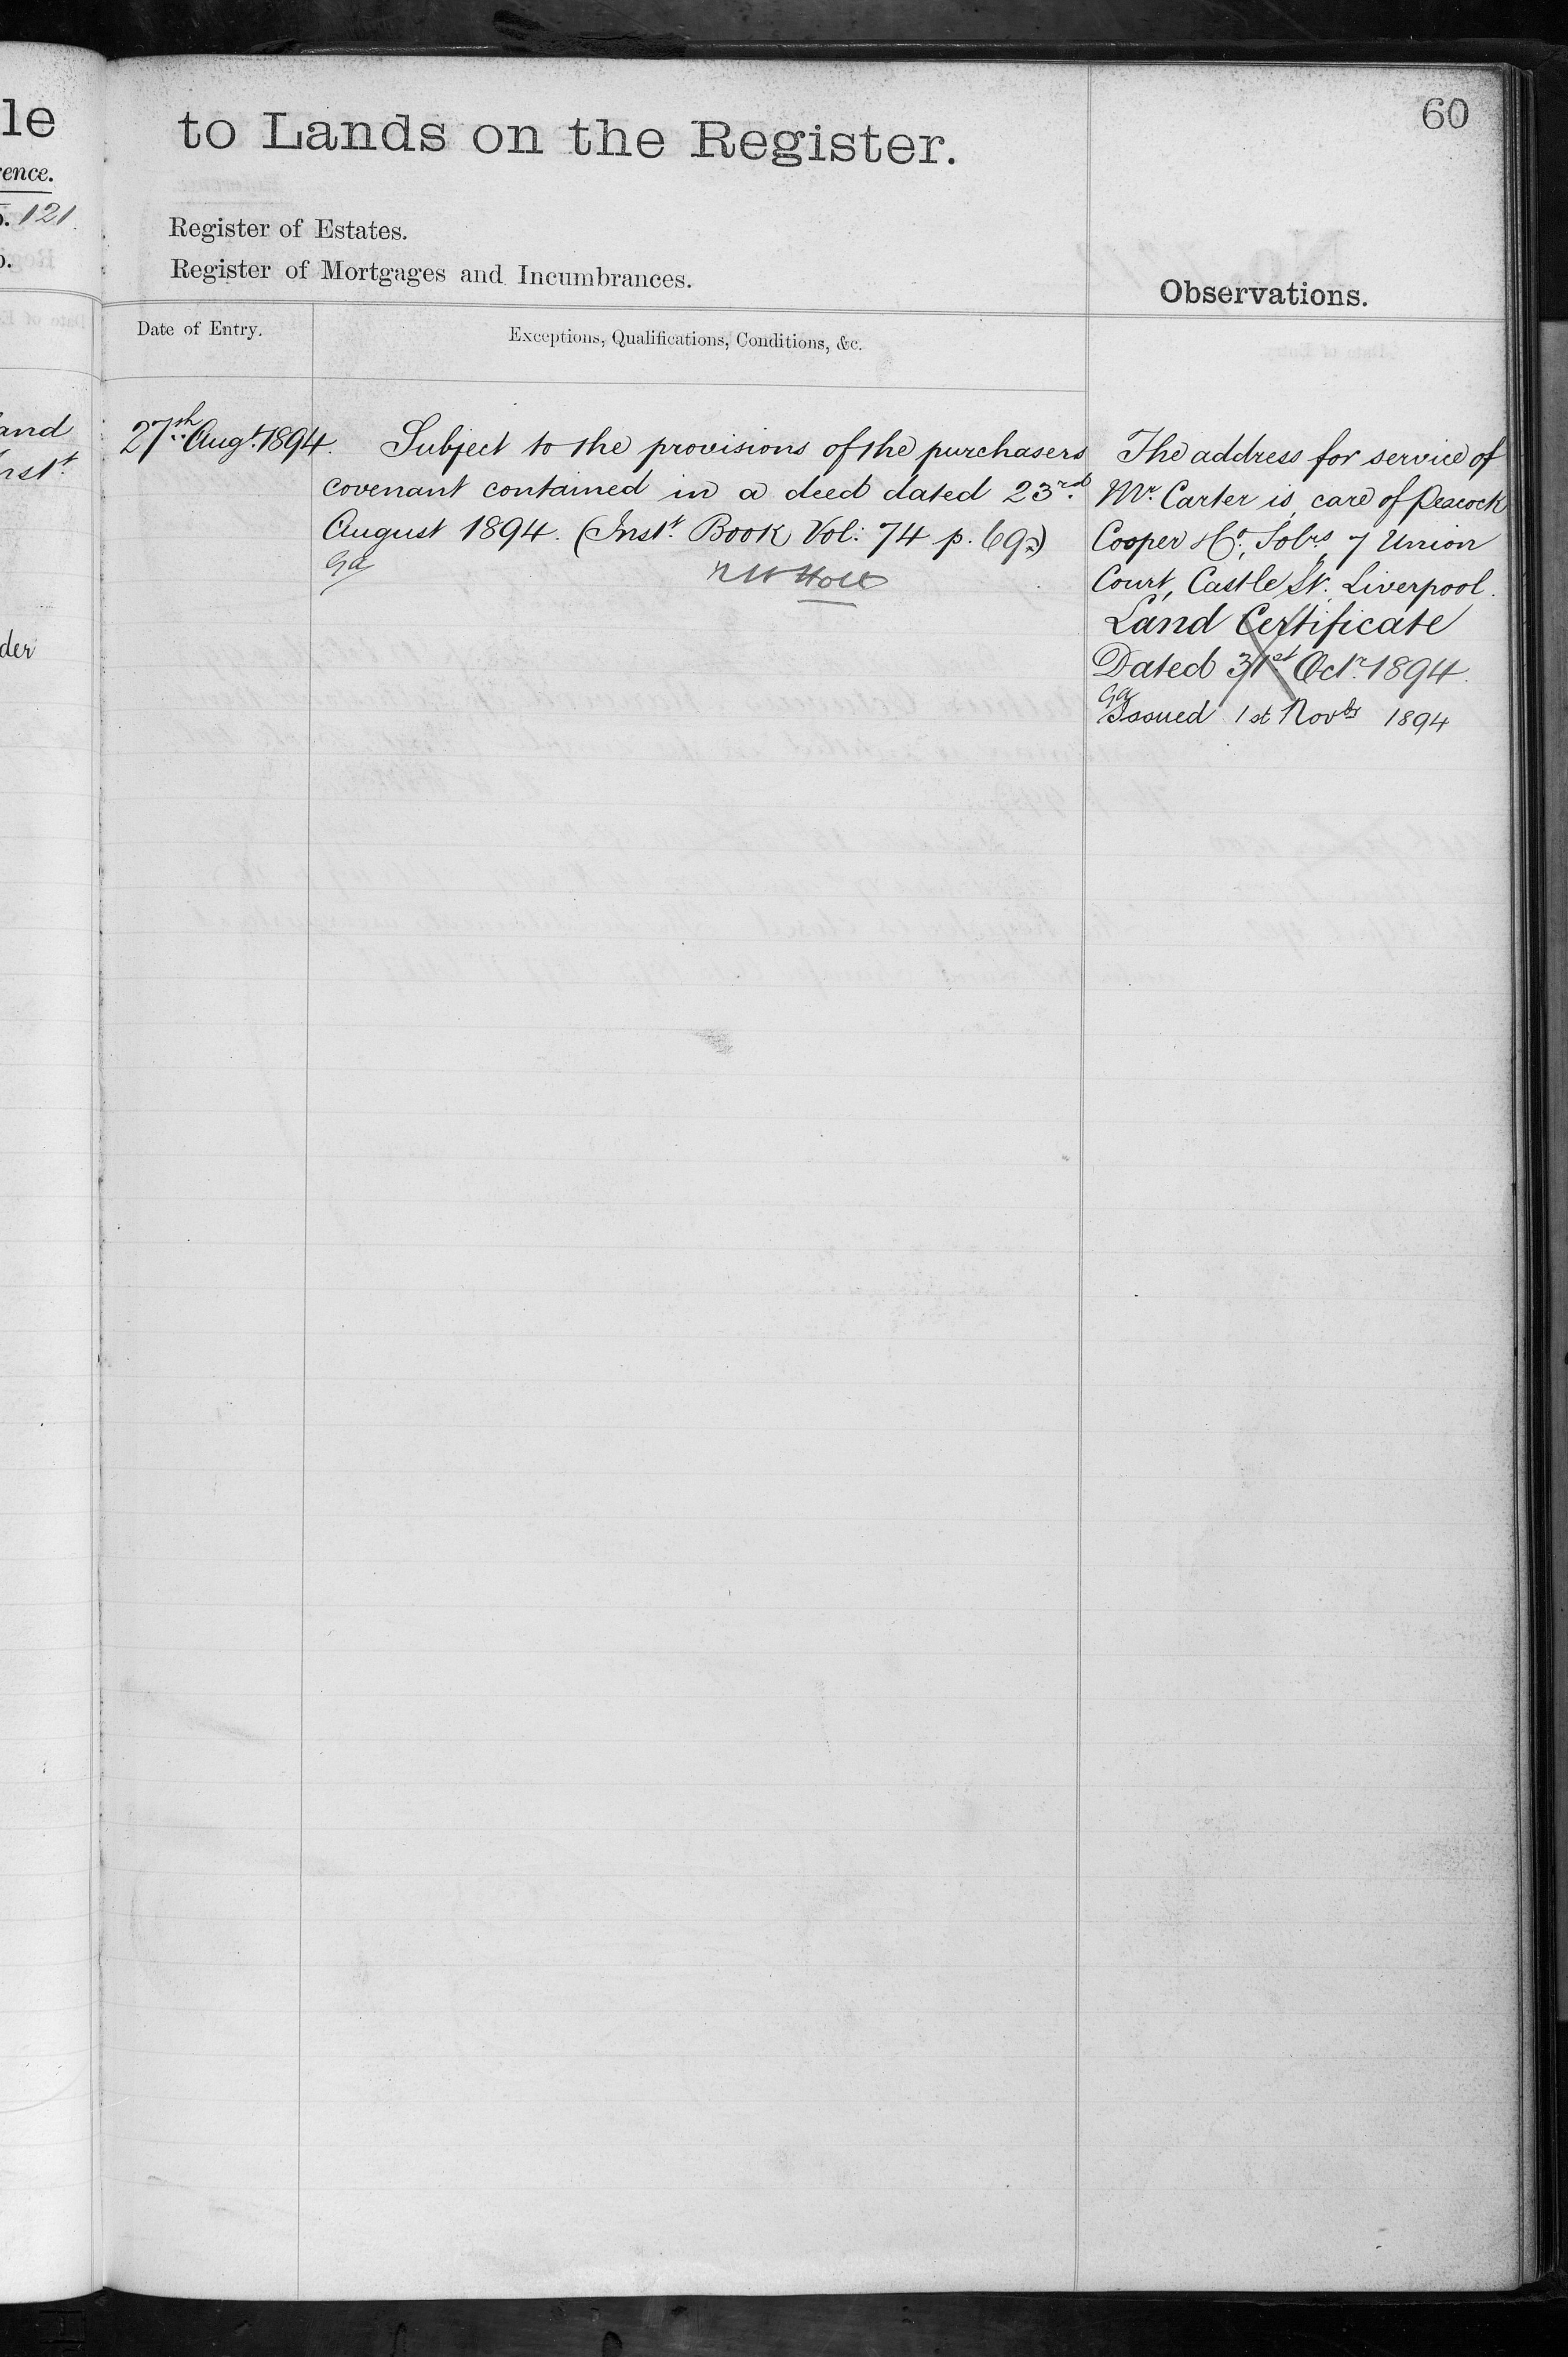 le
ence.
121.
to Lands on the Register.
60
Register of Estates.
Register of Mortgages and Incumbrances.
Observations.
Date of Entry.
Exceptions, Qualifications, Conditions, &c.
and
Inst.t
der
27th Augt. 1894.
Subject to the provisions of the purchasers
covenant contained in a deed dated 23rd
August 1894. (Inst.t Book Vol: 74 p. 69)
The address for service of
Mr. Carter is, care of Peacock
Cooper & Co., Solrs, 7 Union
Court, Castle St. Liverpool.
Land Certificate
Dated 31st Octr. 1894.
Issued 1st Novbr 1894